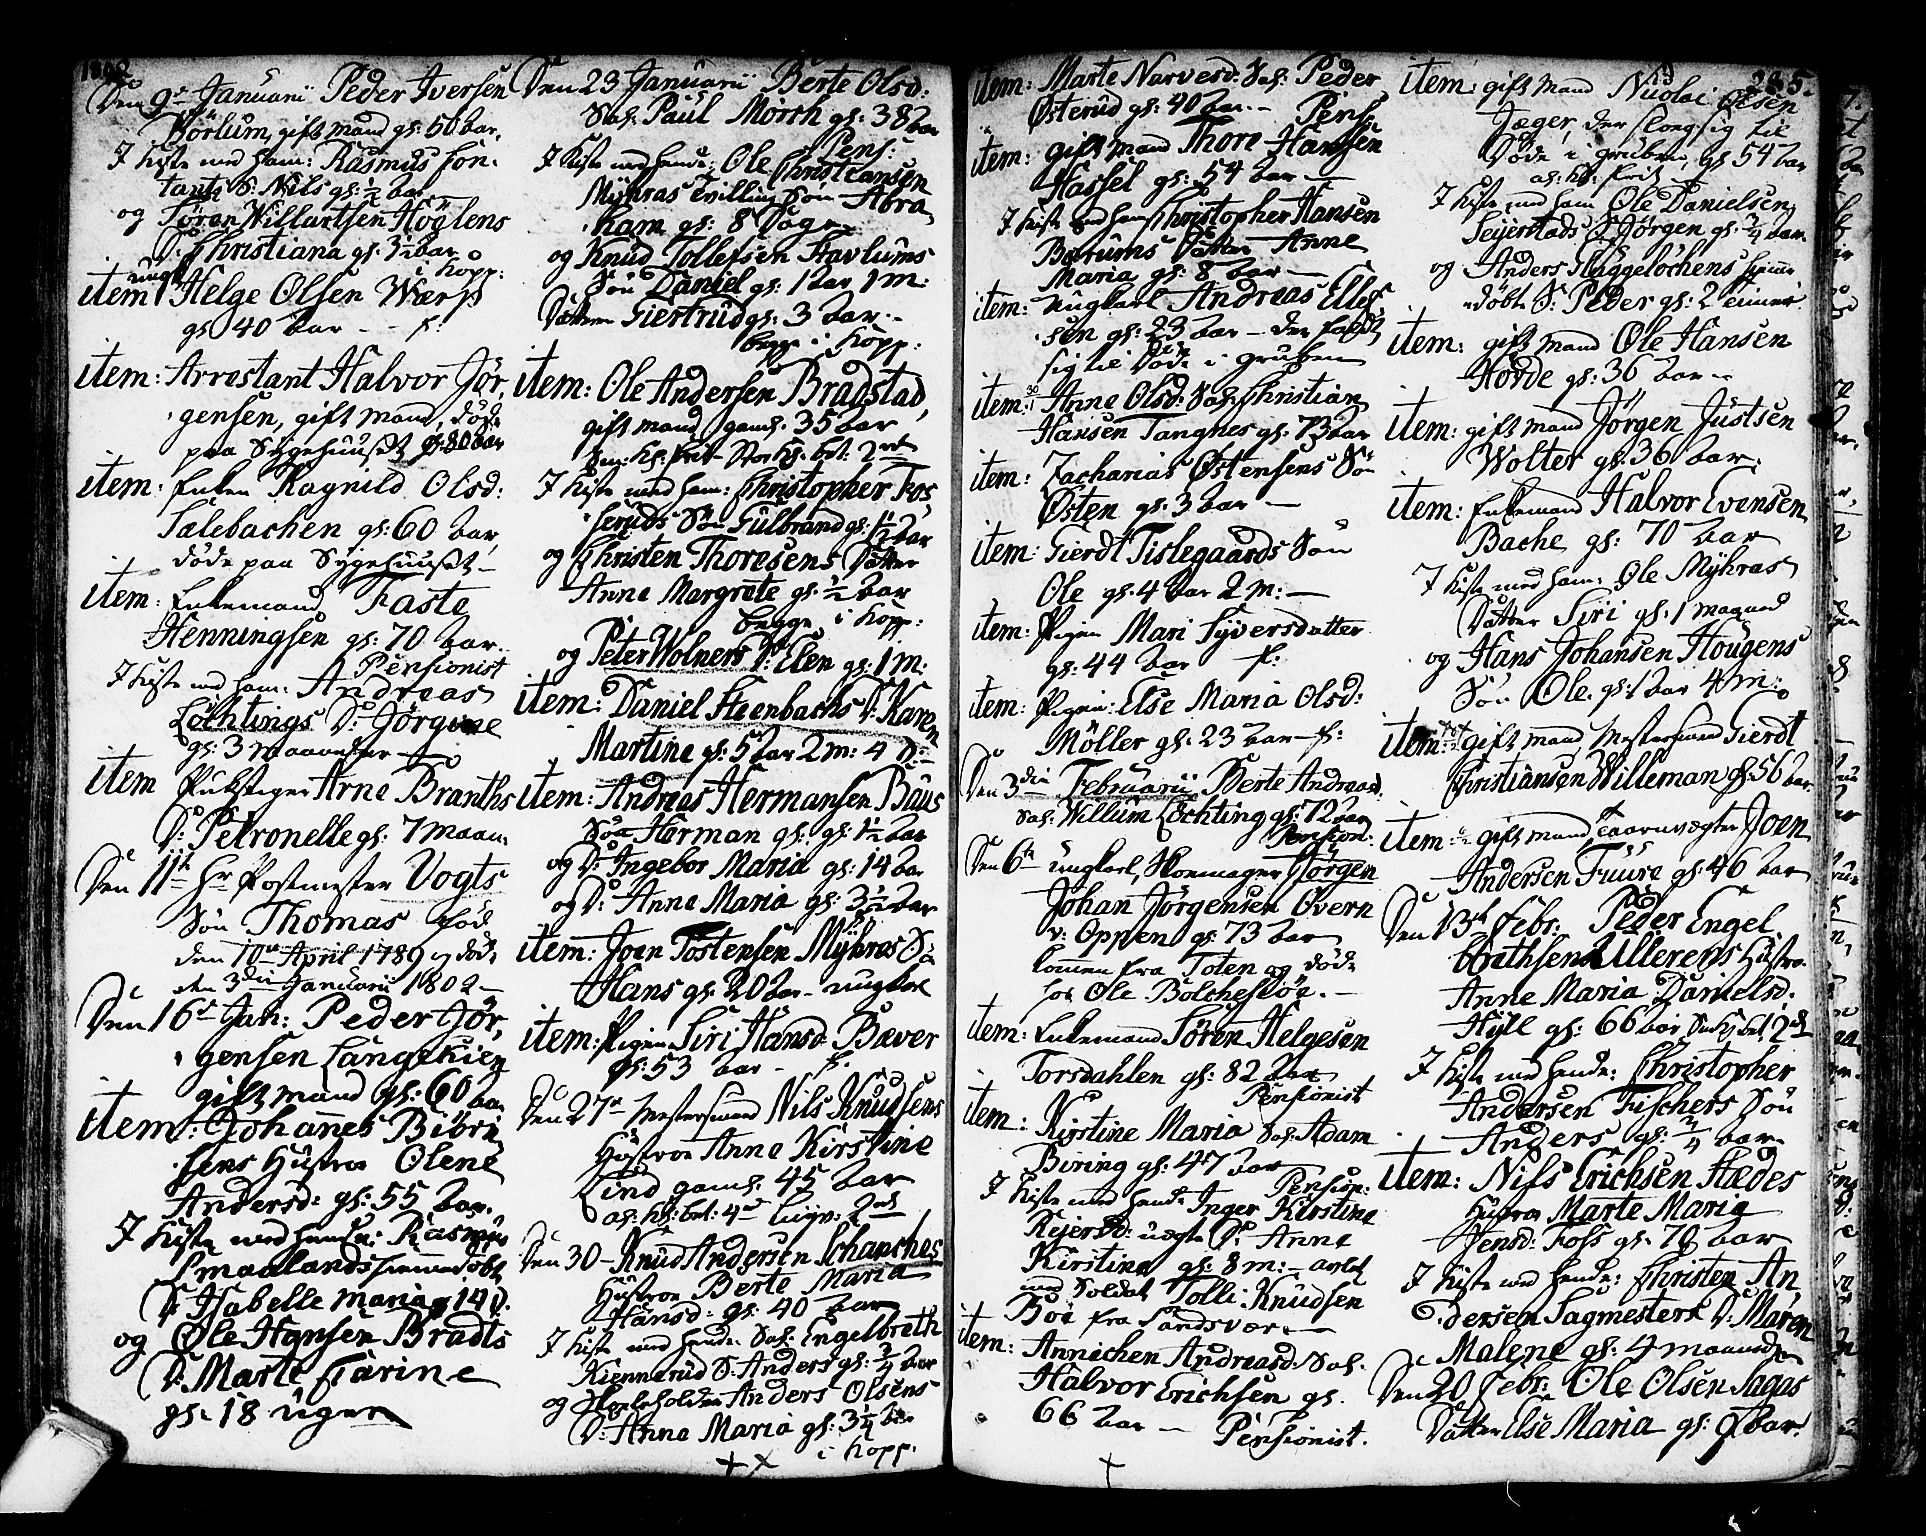 1802
Den 9de Januarii Peder Iversen
Börlum, gift mand gl: 50 aar,
I Kiste med ham: Rasmus Fon-
tants S: Nils gl: ½ aar
og Sören Willartsen Höglens
D: Christiana gl: 3½ aar
i Kopp:
item ungk Helge Olsen Wærp
gl 40 aar - - f:
item: Arrestant Halvor Jör,
gensen, gift mand, döde
paa Sygehuuset gl: 30 aar
item: Enken Ragnild Olsd:
Salebachen gl: 60 aar,
döde paa Sygehuuset -
item: Enkemand Faste
Henningsen gl: 70 aar
Pensionist
I Kiste med ham: Andreas
Lochtings D: Jörgine
gl: 3 maaneder
item Pukstiger Arne Branths
D: Petronelle gl: 7 maan:
Den 11te Hr Postmester Vogts
Sön Thomas föd
den 10de April 1789 og död
den 3die Januarii 1802 -
Den 16de Jan: Peder Jör,
gensen Langekien
gift mand gl: 60 aar
item: Johannes Bibri
sens Hustroe Olene
Andersd: gl: 55 aar.
I Kiste med hende: Rasmus
Smaalands hiemmedöbt
D: Isabelle Maria gl 14 d.
og Ole Hansen Bradts
D: Marte Carine
gl: 18 uger
Den 23 Januarii Berte Olsd:
Sal: Paul Mörch gl: 38 aar
Pens:
I Kiste med hende: Ole Christiansen
Myhras Tvilling Sön Abra
ham gl: 8 Dage
og Knud Tollefsen Havlums
Sön Daniel gl: 1 aar 1 m:
Datter Giertrud gl: 3 aar.-
begge i Kopp:
item: Ole Andersen Bradstad,
gift mand gaml. 35 aar
I Kiste med ham: Christopher Fos,
seruds Sön Gulbrand gl: 1½ aar
og Christen Thoresens Datter
Anne Margrete gl: ½ aar
begge i Kopp:
og Peter Wolners D: Elen gl: 1 m:
item: Daniel Steenbachs D: Karen
Martine gl: 5 aar 2 m: 4 D:
item: Andreas Hermansen Baus
Sön Herman gl: gl: 1½ aar
og D: Ingebor Maria gl: 14 aar
og D: Anne Maria gl: 3½ aar
item: Joen Tostensen Myhras S:
Hans gl: 20 aar - ungkarl
item: Pigen Siri Hansd: Bæver
gl: 53 aar - f.
Den 27de Mestersvend Nils Knudsens
Hustroe Anne Kirstine
Lind gaml: 45 aar
Den 30- Knud Andersen Schanches
Hustroe Berte Maria
Hansd: gl: 40 aar
I Kiste med hende Sal: Engelbreth
Kiennerud S: Anders gl: ¾ aar
og Anders Olsens
D: Anne Maria gl: 3¼ aar
i Kopp:
item: Marte Narvesd: Sal: Peder
Österud gl: 40 aar.- Pens:
item: gift mand Thore Hansen
Hassel gl: 54 aar -
I Kiste med ham Christopher Hansen
Bærums Datter Anne
Maria gl: 8 aar -
item: Ungkarl Andreas Ellef,
sen gl: 23 aar - der faldt
sig til Döde i gruben
item: Anne Olsd: Sal: Christian
Hansen Tangnes gl: 73 aar
item: Zacharias Östensens Sön
Östen gl: 3 aar -
item: Gierdt Tislegaards Sön
Ole gl: 4 aar 2 m: -
item: Pigen Mari Syversdatter
gl: 44 aar - f:
item: Pigen Else Maria Olsd:
Möller gl: 23 aar - f:
Den 3die Februarii Berte Andreasd.
Sal: Willum Lochting gl: 72 aar
Pension:
Den 6te ungkarl, Skoemager Jörgen
Johan Jörgensen Övern
v: Oppen gl: 73 aar
kommen fra Toten og döde
hos Ole Bolcheskoe. -
item: Enkemand Sören Helgesen
Torsdahlen gl: 82 aar
Pensionist
item: Kirstine Maria Sal. Adam
Biring gl: 47 aar
Pension:
I Kiste med hende: Inger Kirstine
Rejersd: uægte D: Anne
Kirstine gl: 8 m: - avlet
med Soldat Tolle Knudsen
Böe fra Sandsvær. -
item: Annichen Andreasd: Sal.
Halvor Erichsen gl.
66 aar - Pensionist.
285.
item: gift mand Nicolai Olsen
Jæger, der slog sig til
Döde i gruben, gl 54 aar
I Kiste med ham Ole Danielsen
Seijerstads S: Jörgen gl: ¾ aar
og Anders Flaggelochens hiemme
döbte S: Peder gl: 2 timer
item: gift mand Ole Hansen
Horde gl: 36 aar -
item: gift mand Jörgen Justsen
Wolter gl: 36 aar:
item: Enkemand Halvor Evensen
Bache gl: 70 aar
I Kiste med ham: Ole Myhras
Datter Siri gl: 1 maaned
og Hans Johansen Hougens
Sön Ole gl: 1 aar 4 m:
item: gift mand, Mestersvend Gierdt
Christiansen Willeman gl: 56 aar
item: gift mand, Taarnvægter Joen
Andersen Fuure gl: 46 aar
Den 13de Febr: Peder Engel
brethsen Ullerens Hustro
Anne Maria Danielsd:
Hyll gl: 66 aar
I Kiste med hende: Christopher
Andersen Fischers Sön
Anders gl: ¾ aar
item: Nils Erichsen Stædes
Hustroe Marte Maria
Jensd: Foss gl: 70 aar
I Kiste med hende: Christen An,
dersen Sagmesters D: Maren
Malene gl: 4 maaneder
Den 20 Febr: Ole Olsen Sagas
Datter Else Maria gl: 9 aar.